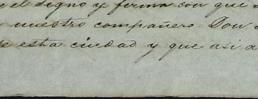 el digno y firma con que
nuestro compañero Don
esta ciudad y que asi